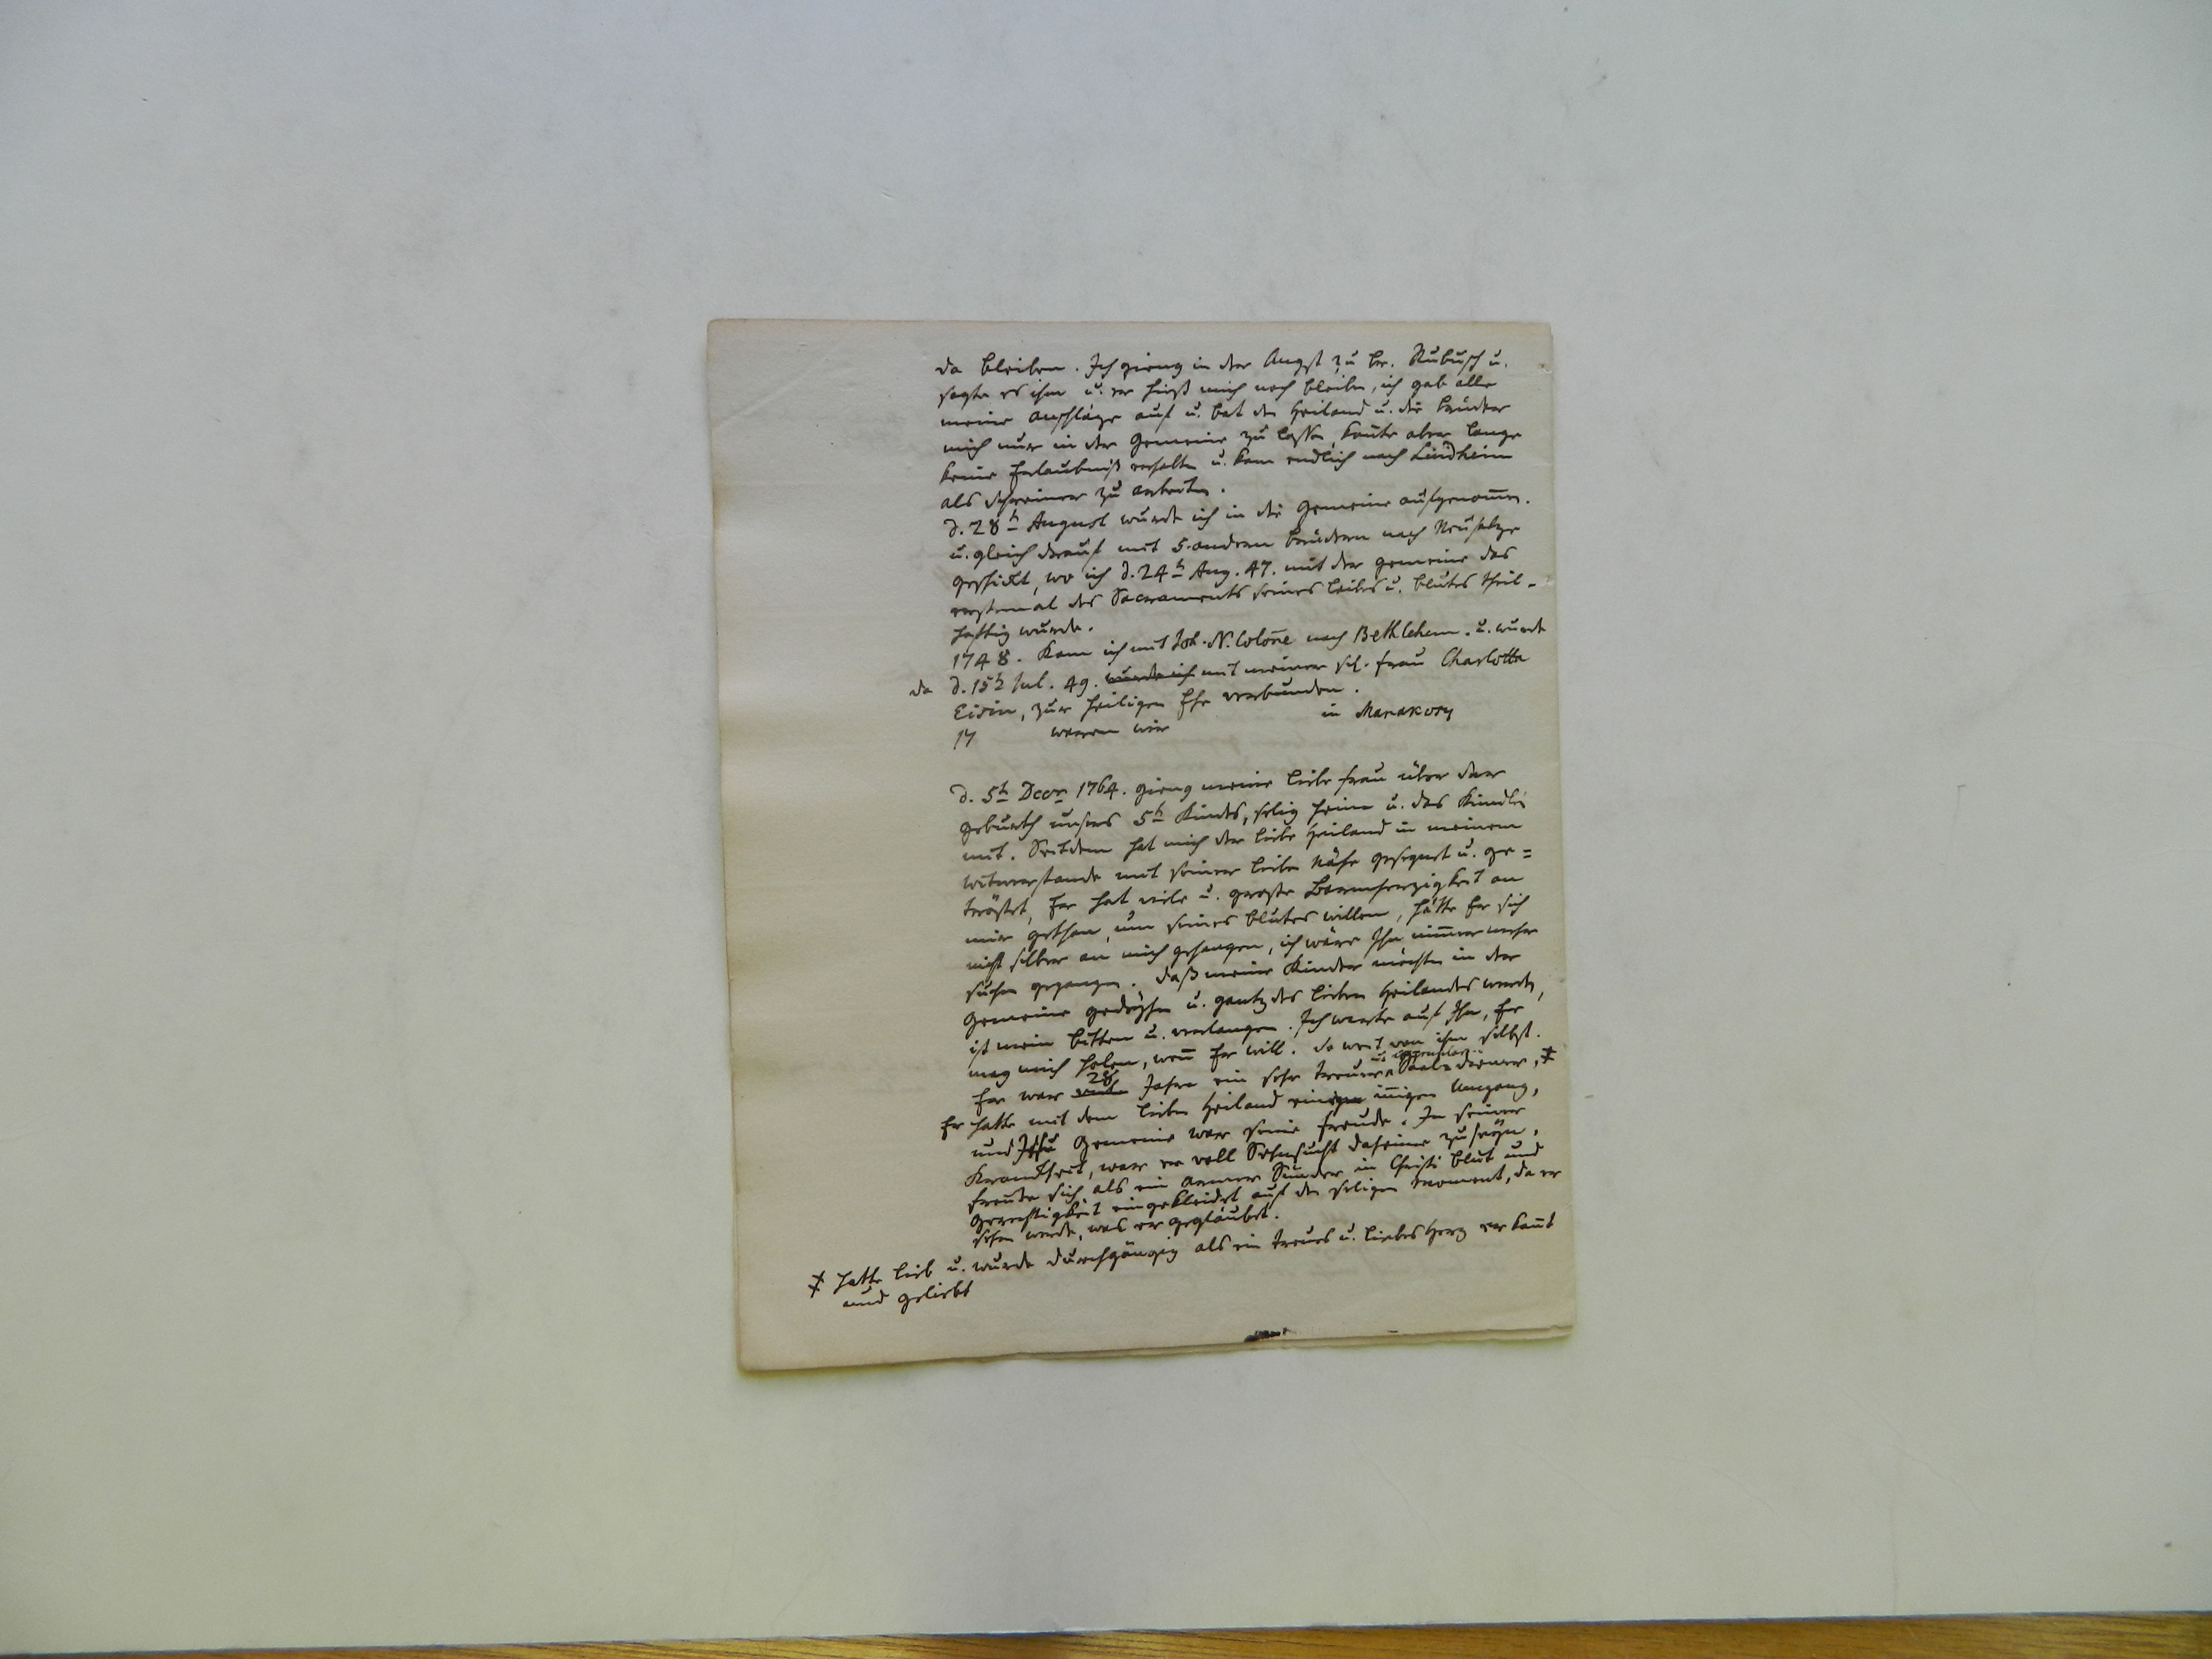 da bleiben. Ich gieng in der Angst zu br. Nubusch u.
sagte es ihm u. er hieß mich noch bleiben, ich gab alle
meine Anschläge auf u. bat den Heiland u. die brüder
mich nur in der Gemeine zu lassen, konte aber lange
keine Erlaubniß erhalten u. kam endlich nach Lindheim
als Schreiner zu arbeiten.
d. 28t August wurde ich in die Gemeine aufgenom̅en.
u. gleich darauf mit 5 andern brüdern nach Neusalze
geschickt, wo ich d. 24t Aug. 47. mit der Gemeine das
erstemal des Sacraments seines leibes u. blutes theil-
haftig wurde.
1748. kam ich mit Joh. N. nach Bethlehem. u. wurde
da d. 15t Jul. 49. wurde ich mit meiner sel. frau Charlotta
Eisin, zur heiligen Ehe verbunden.
17 waren wir in Manakosy
d. 5t Decr 1764. gieng meine liebe frau über der
geburth unsers 5t Kindes, selig heim u. das Kindlein
mit. Seitdem hat mich der liebe Heiland in meinem
Witwerstande mit seiner lieben Nähe gesegnet u. ge=
tröstet, Er hat viele u. große Barmherzigkeit an
mir gethan, um seines blutes willen, hätte Er sich
nicht selber an mich gehangen, ich wäre Ihn nim̅ermehr
suchen gegangen. Daß meine Kinder möchten in der
Gemeine gedeyhen u. gantz des lieben Heilandes werden,
ist mein bitten u. verlangen. Ich warte auf Ihn, Er
mag mich holen, wen̅ Er will. So weit von ihm selbst.
Er war 28 Jahre ein sehr treuer u. Saal-diener, ‡
Er hatte mit dem lieben Heiland einen in̅igen Umgang,
und Jesu Gemeine war seine freude. In seiner
Krankheit, war er voll Sehnsucht daheime zu seyn,
freute sich, als ein armer Sünder in Christi blut und
gerechtigkeit eingekleidet auf den seligen moment, da er
sehen werde, was er geglaubet.
‡ hatte lieb u. wurde durchgängig als ein treues u. liebes Herz erkan̅t
und geliebt